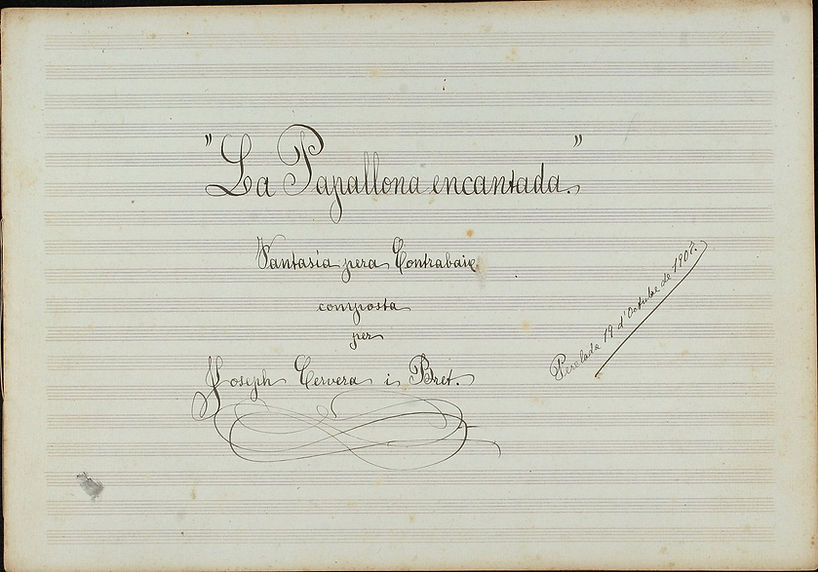 "La Papallona encantada."
Fantasía pera Contrabaix
composta
per
Joseph Cervera i Bret.
Perelada 19 d'Octubre de 1907.